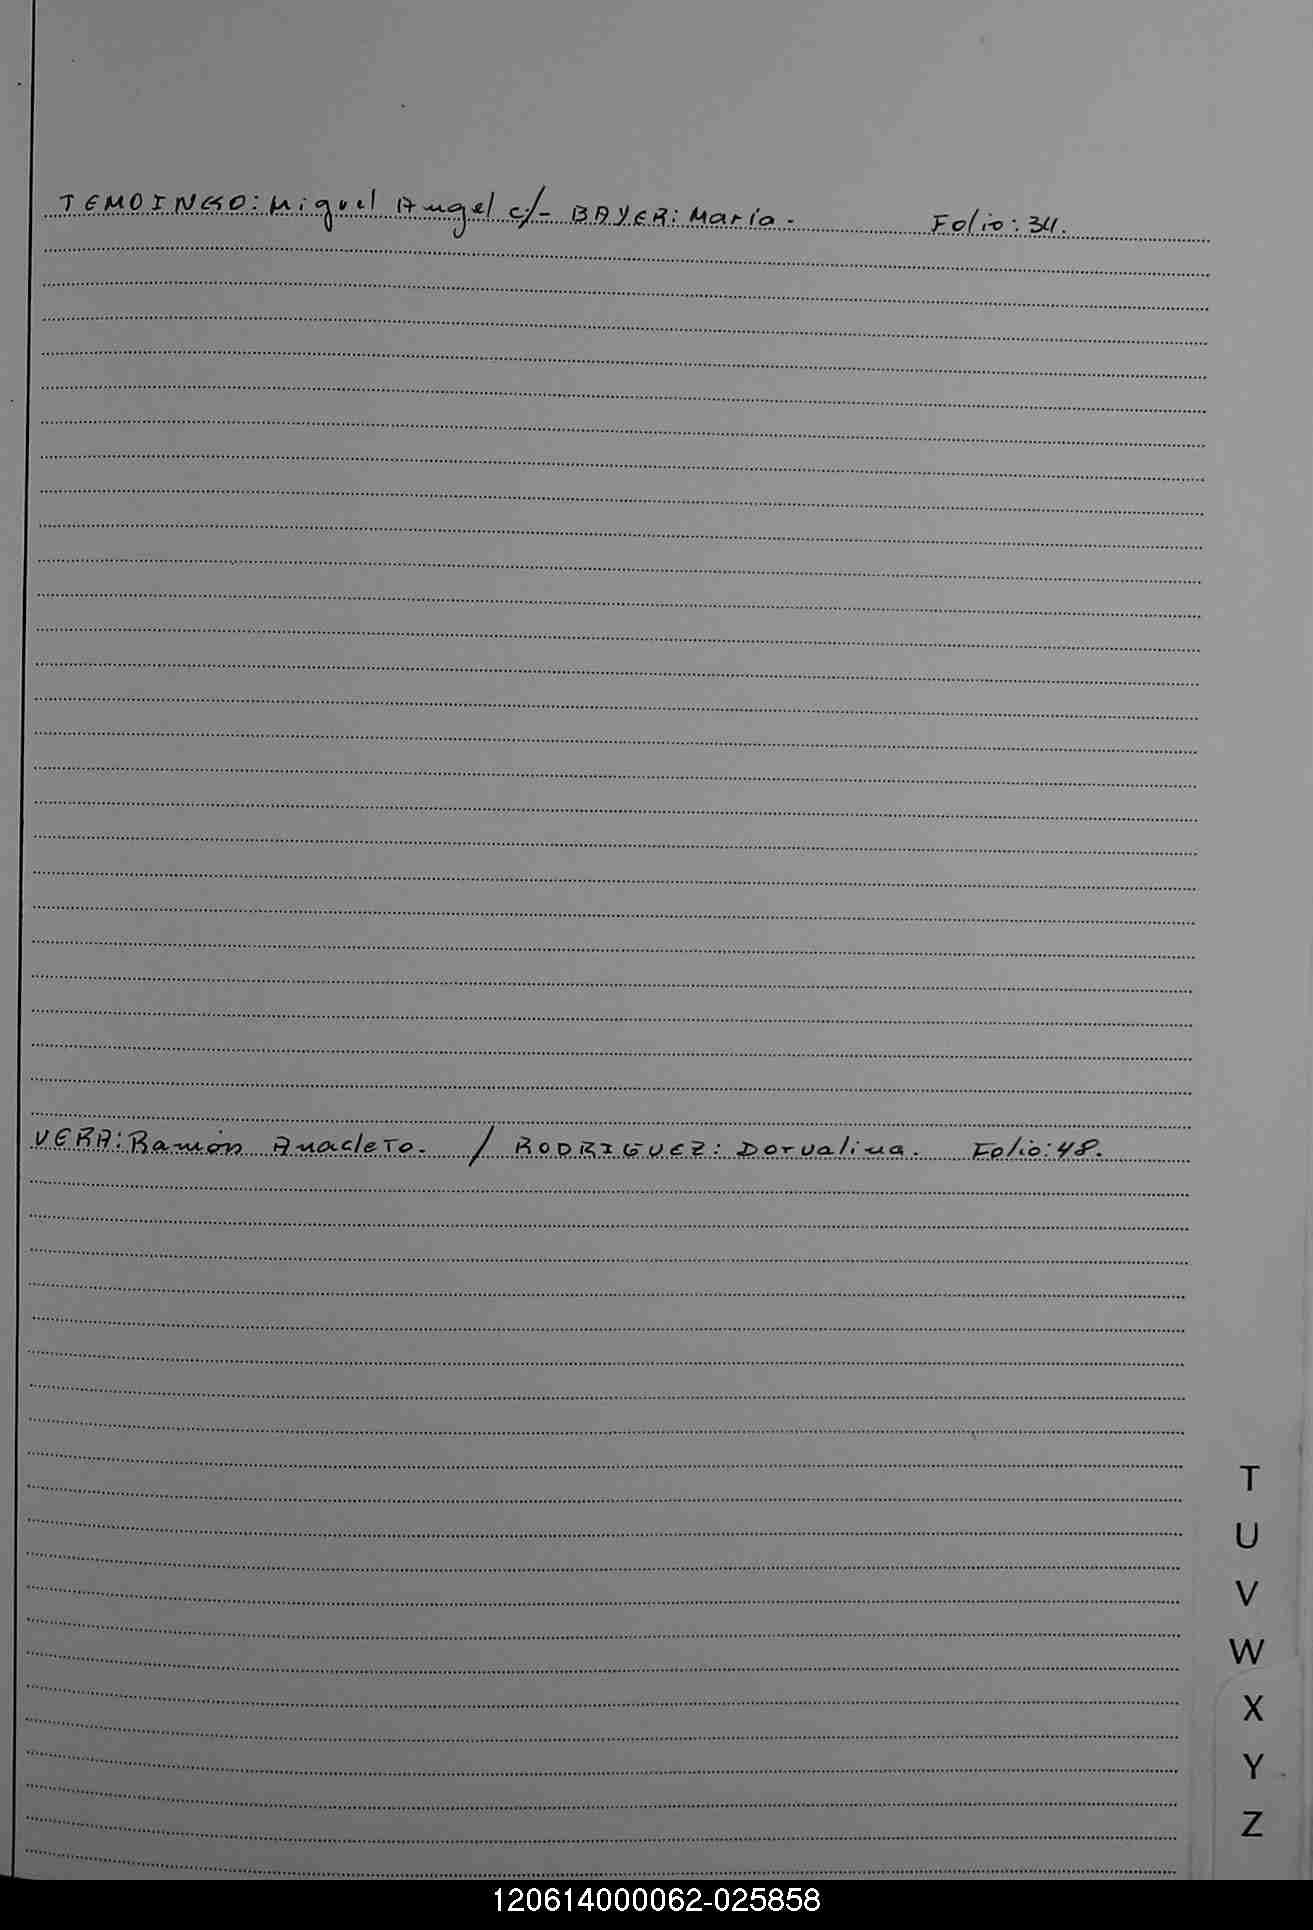 TEMOINGO: Miguel Angel c/- BAYER: María. Folio: 34.
VERA: Ramón Anacleto. / RODRIGUEZ: Dorvalina. Folio: 48.
T
U
V
W
X
Y
Z
120614000062-025858